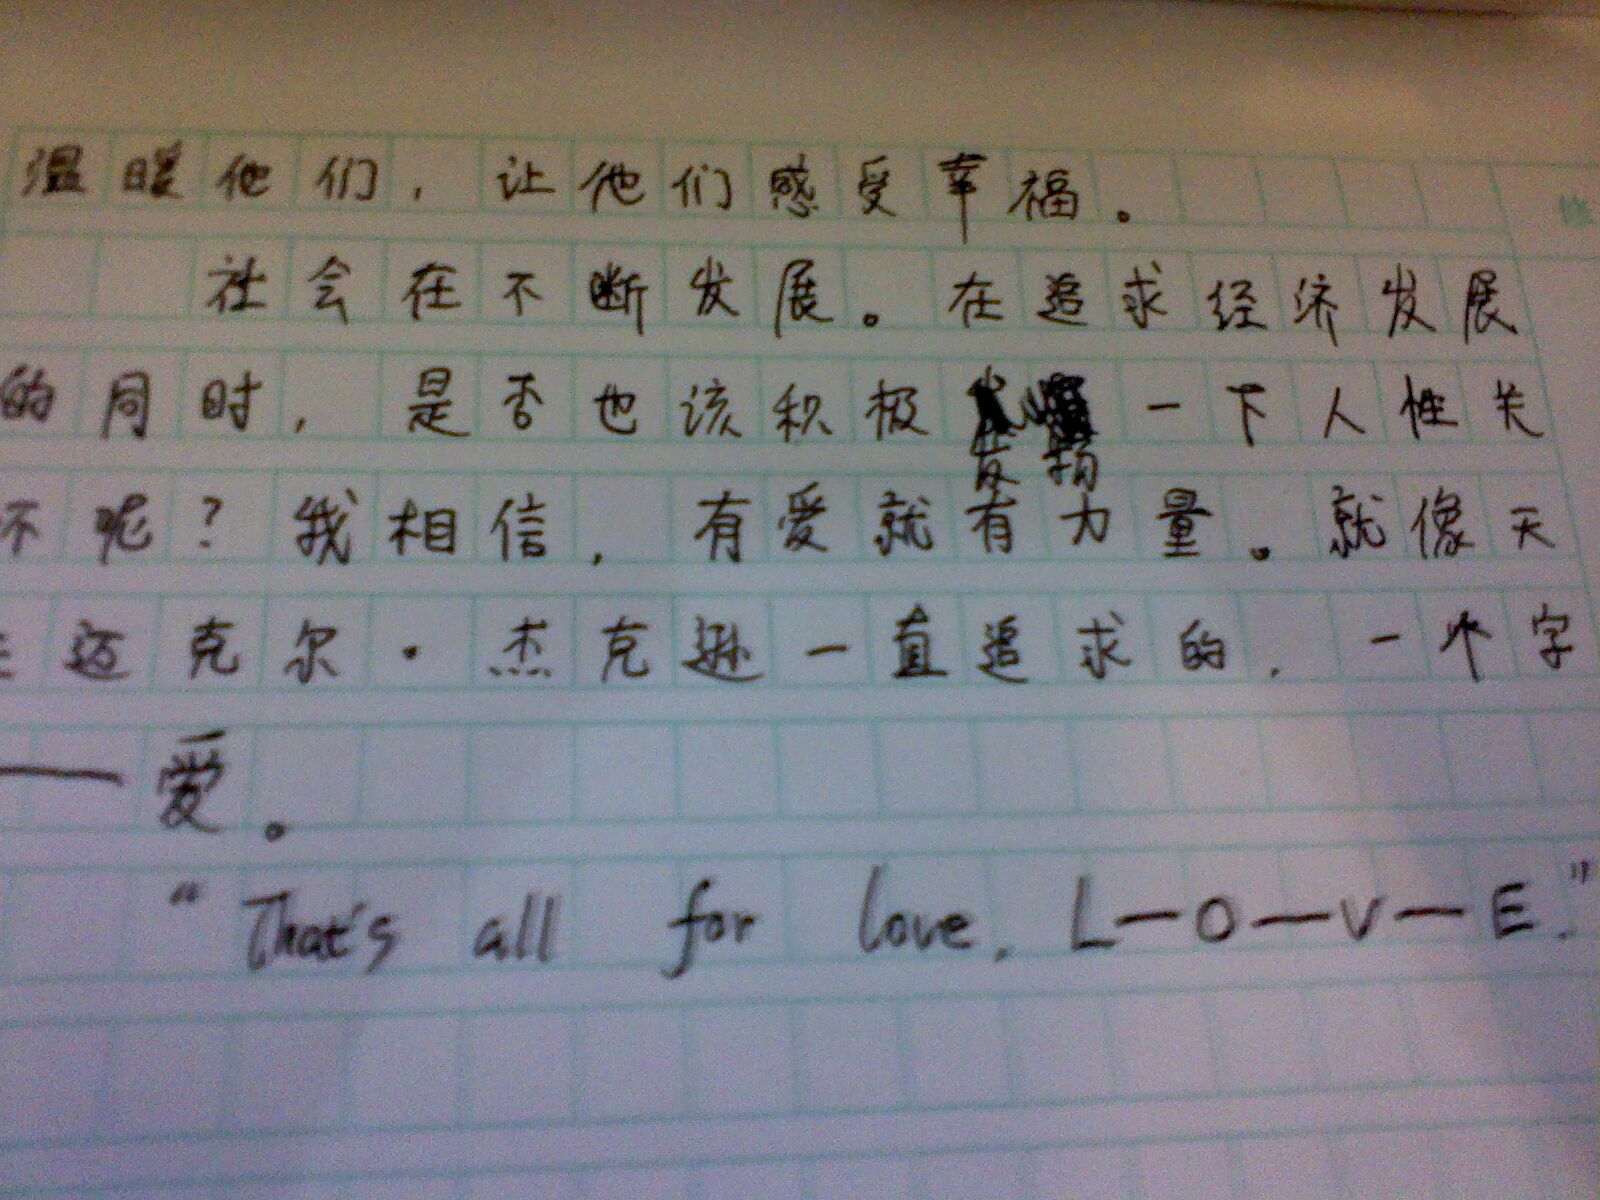 温暖他们，让他们感受幸福。
社会在不断发展。在追求经济发展
的同时，是否也该积极发扬一下人性关
怀呢？我相信，有爱就有力量。就像天
王迈克尔·杰克逊一直追求的，一个字
——爱。
“That's all for love. L—O—V—E.”